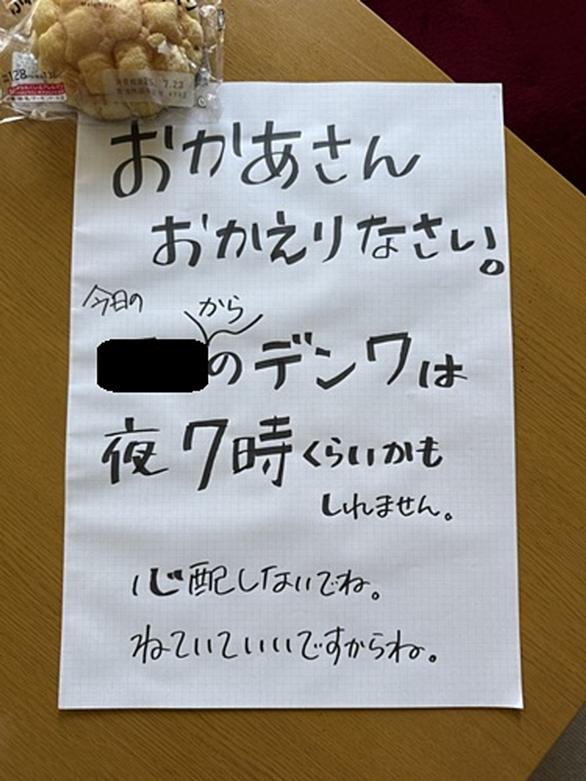 128
7.23
おかあさん
おかえりなさい。
今日の
から
のデンワは
夜7時くらいかも
しれません。
心配しないでね。
ねていていいですからね。